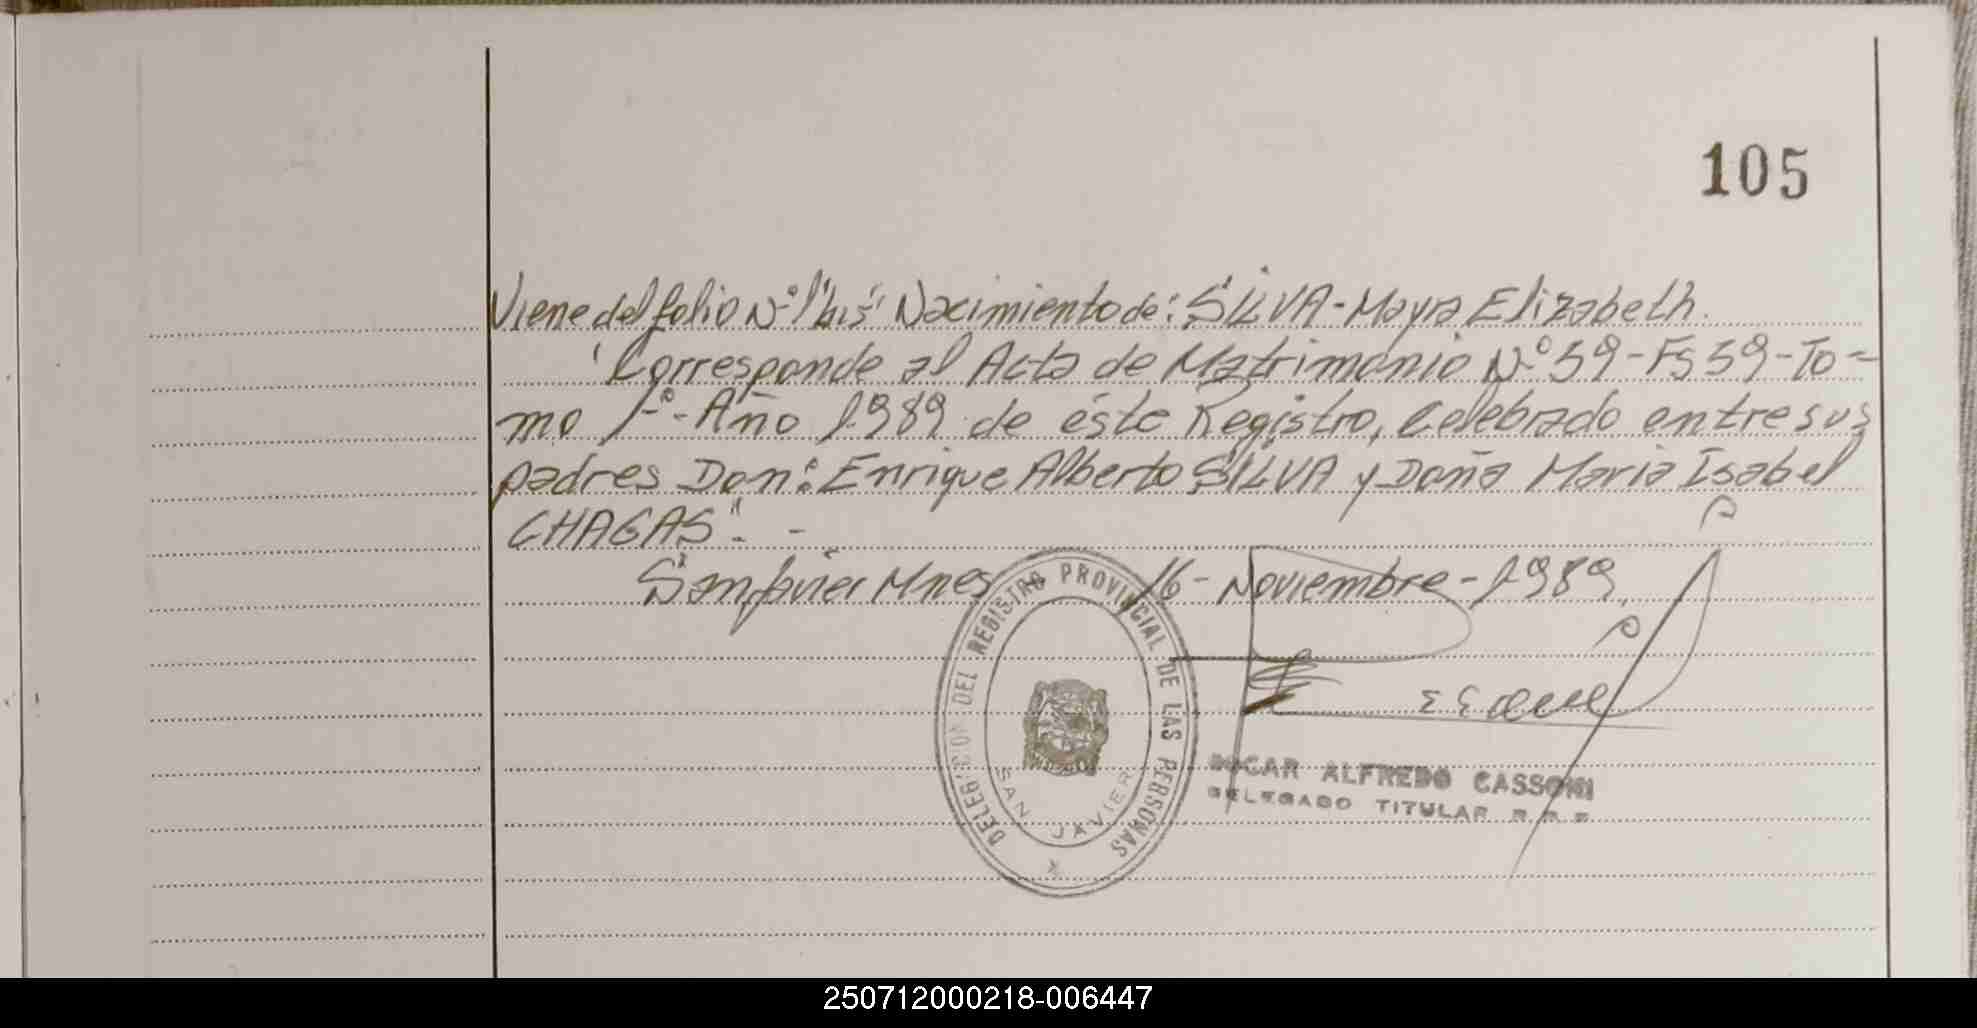 105
Viene del folio Nº 1"bis" Nacimiento de: SILVA - Mayra Elizabeth.
"Corresponde al Acta de Matrimonio Nº 59 - Fs 59 - To-
mo 1º - Año 1989 de éste Registro, Celebrado entre sus
padres Don: Enrique Alberto SILVA y Doña Maria Isabel
CHAGAS". -
San Javier Mnes 16 - Noviembre - 1989.
DELEGACION DEL REGISTRO PROVINCIAL DE LAS PERSONAS
SAN JAVIER
EDGAR ALFREDO CASSONI
DELEGADO TITULAR R.P.P.
250712000218-006447